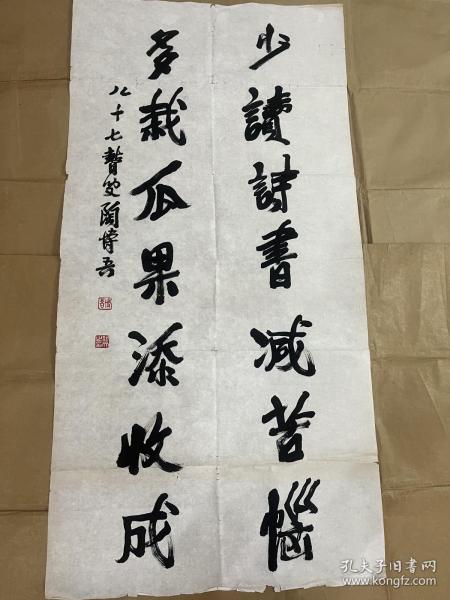 少讀詩書減苦惱
多栽瓜果添收成
八十七瞽叟陶博吾
孔夫子旧书网
www.kongfz.com